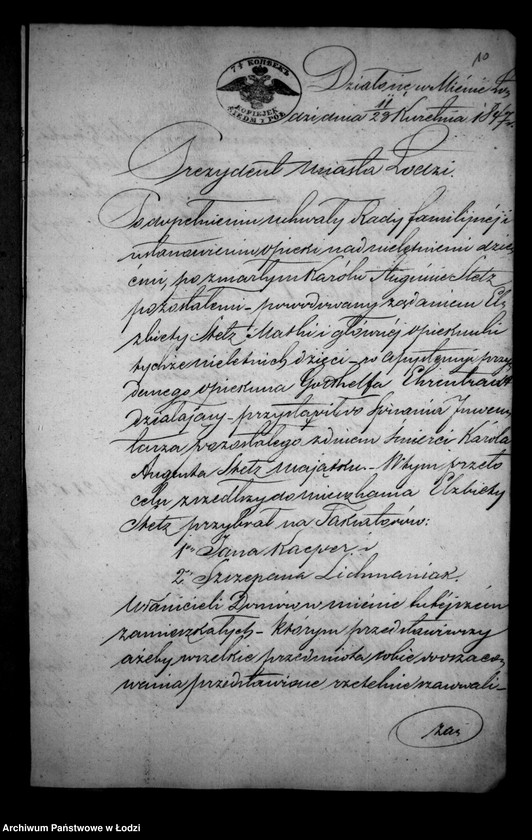 10
7½ КОПѢЕКЪ
KOPIEJEK
SIEDM Y PÓŁ
Działo się w Mieście
dzi dnia 11/23 Kwietnia 1847 r.
Prezydent Miasta Łodzi.
Po dopełnieniu uchwały Rady familijnéj i
ustanowieniu opieki nad nieletniemi dzie
ćmi, po zmarłym Karólu Auguście Stetz
pozostałemi – powodowany żądaniem El
zbiety Stetz Matki i głównéj opiekunki
tychże nieletnich dzieci – w assystencyi przy
danego opiekuna Gotthelfa Ehrentraut
działający – przystąpił do spisania Inwen
tarza pozostałego z dniem śmierci Karóla
Augusta Stetz majątku – W tym przeto
celu zszedłszy do mieszkania Elżbiety
Stetz przybrał na Taxatorów:
1o Jana Kacper i
2o Szczepana Lichmaniak.
Właścicieli Domów w mieście tutejszém
zamieszkałych – którym przedstawiwszy
ażeby wszelkie przedmiota sobie do oszaco
wania przedstawione rzetelnie szacowali –
zaś
Archiwum Państwowe w Łodzi